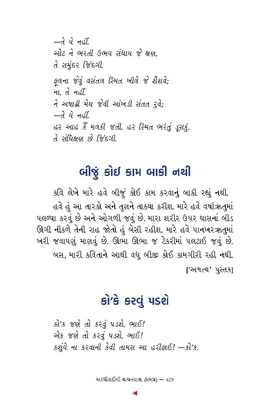 —તે યે નહીં.
ઓટ ને ભરતી ઉભય સંધાય જે ક્ષણ,
તે સમુંદર જિંદગી.
ફૂલના જેવું વસંતલ સ્મિત ખીલે જે શૈશવે;
ના, તે નહીં.
ને અષાઢી મેઘ જેવી આંખડી સંતત ટુવે;
—તે યે નહીં.
હર આહ કૈં મલકી જતી, હર સ્મિત ભરંતું ડૂસકું,
તે સંધિક્ષણ છે જિંદગી.
બીજું કોઈ કામ બાકી નથી
કવિ લેખે મારે હવે બીજું કોઈ કામ કરવાનું બાકી રહ્યું નથી.
હવે હું આ તારકો અને તૃણને તાક્યા કરીશ. મારે હવે વર્ષાઋતુમાં
પલળ્યા કરવું છે અને ઓગળી જવું છે. મારા શરીર ઉપર ઘાસનાં બીડ
ઊગી નીકળે તેની રાહ જોતો હું બેસી રહીશ. મારે હવે પાનખરઋતુમાં
ખરી જવાપણું માણવું છે. ઊભા ઊભા જ ટેકરીમાં પલટાઈ જવું છે.
બસ, મારી કવિતાને આથી વધુ બીજી કોઈ કામગીરી રહી નથી.
['અશ્વત્થ' પુસ્તક]
કો'કે કરવું પડશે
કો'ક જણે તો કરવું પડશે, ભાઈ!
એક જણે તો કરવું પડશે, ભાઈ!
કશુંયે ના કરવાની કેવી તામસ આ હરીફાઈ! —કો'ક.
અરધીસદીની વાચનયાત્રા (કાવ્ય) — 429